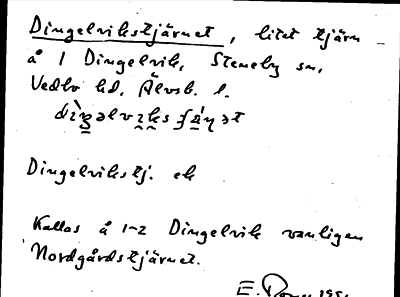 Dingelvikstjärnet, litet tjärn
å 1 Dingelvik, Steneby sn,
Vedbo hd, Älvsb. l.
Dingelvikstj. ek
Kallas å 1-2 Dingelvik vanligen
Nordgårdstjärnet.